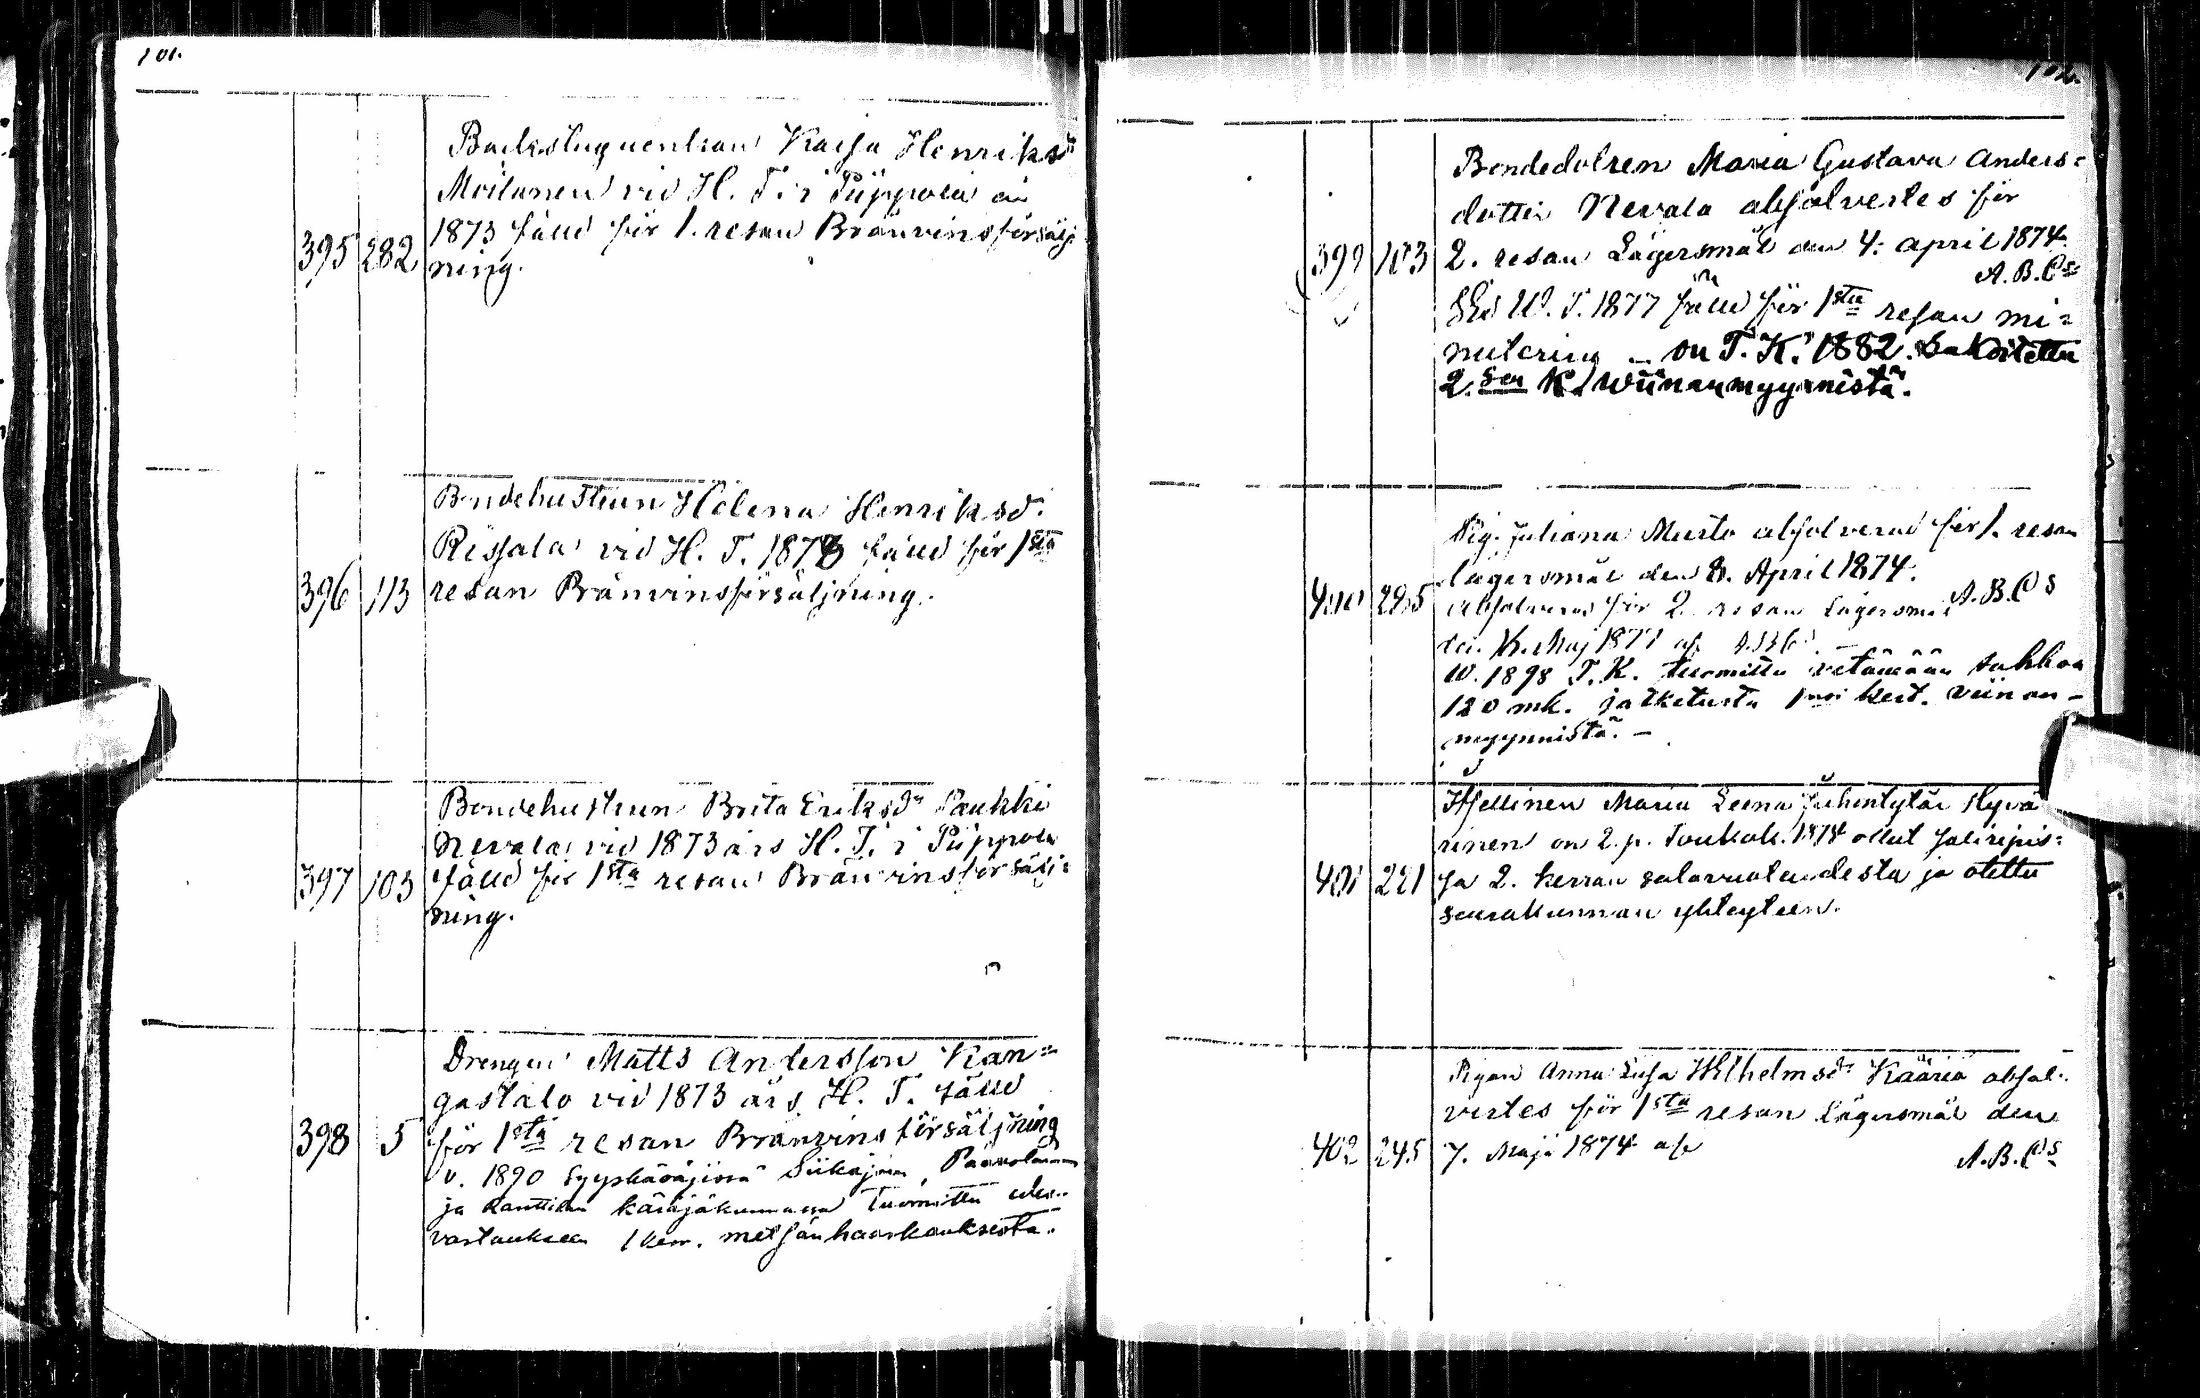 101.
Backstuguenkan Kaisa Henriksdr
Moilanen vid H. T. i Piippola år
1873 fälld för 1. resan Bränvinsförsälj
395 282 ning.
Bondehustrun Helena Henriksdr.
Rissala vid H. T. 1873 fälld för 1sta
396 113 resan Bränvinsförsäljning.
Bondehustrun Brita Eriksdr Paukki
Nevala vid 1873 års H. T. i Piippola
397 103 fälld för 1sta resan Bränvinsförsälj=
ning.
Drengen Matts Andersson Kan=
gastalo vid 1873 års H. T. fälld
398 5 för 1sta resan Bränvins försäljning
v. 1890 Syyskäräjissä Siikajoen, Paavolan
ja Rantilan käräjäkunnassa tuomittu edes-
vastaukseen 1 kerr. metsänhaaskauksesta.
102.
Bondedotren Maria Gustava Anders=
dotter Nevala absolvertes för
399 103 2. resan Lägersmål den 4: april 1874
A. B. Cs
vid W. T. 1877 fälld för 1sta resan mi=
nutering – on T. K. 1882. Sakoitettu
2.sen K. Wiinanmyynnistä.
Pig. Juliana Musto absolverad för 1. resan
lägersmål den 8. April 1874.
400 295 Absolverad för 2. resan Lägersmål A. B. Cs
den Maj 1877 af
W. 1898 T. K. tuomittu vetämään sakkoa
120 mk. jatketusta 1msi kert. viinan-
myynnistä. –
Itsellinen Maria Leena Juhontytär Hyvä
rinen on 2. p. Toukok. 1874 ollut salaripis=
401 221 sä 2. kerran salavuoteudesta ja otettu
seurakunnan yhteyteen.
Pigan Anna Lisa Wilhelmsdr Kääriä absol=
vertes för 1sta resan Lägersmål den
402 245 7. Maji 1874 af A. B. Cs